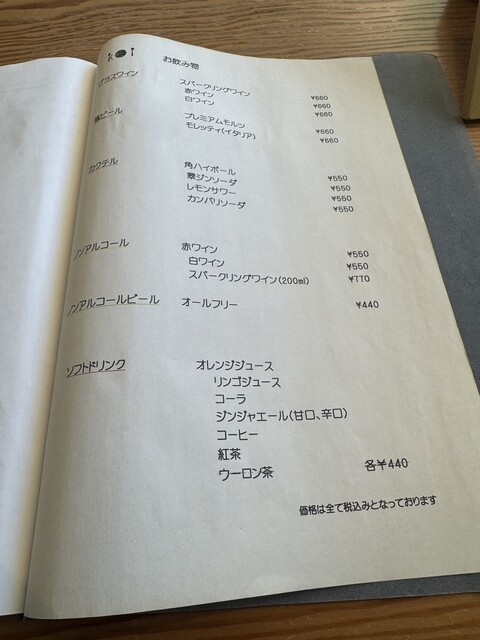 お飲み物
グラスワイン
スパークリングワイン ¥660
赤ワイン ¥660
白ワイン ¥660
瓶ビール
プレミアムモルツ ¥660
モレッティ(イタリア) ¥660
カクテル
角ハイボール ¥550
翠ジンソーダ ¥550
レモンサワー ¥550
カンパリソーダ ¥550
ノンアルコール
赤ワイン ¥550
白ワイン ¥550
スパークリングワイン(200ml) ¥770
ノンアルコールビール オールフリー ¥440
ソフトドリンク オレンジジュース
リンゴジュース
コーラ
ジンジャエール(甘口、辛口)
コーヒー
紅茶
ウーロン茶 各¥440
価格は全て税込みとなっております